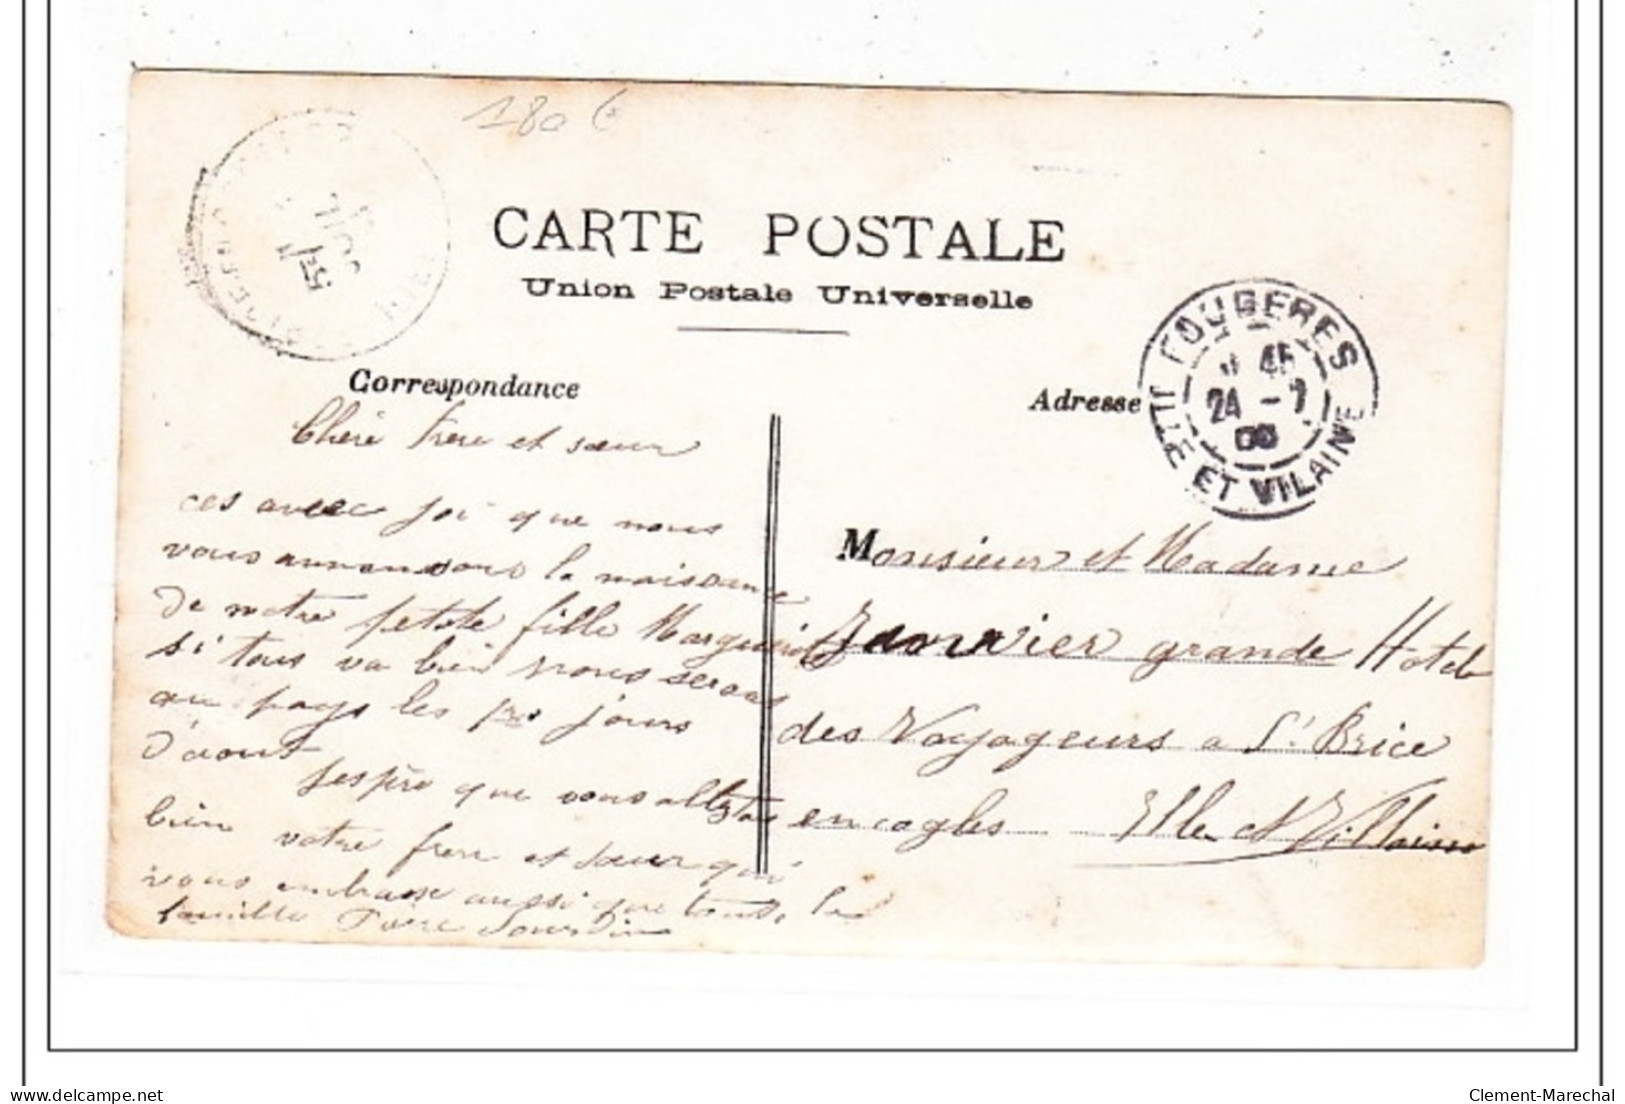 180 €
CARTE POSTALE
Union Postale Universelle
Correspondance
Chéri frère et sœur
ces avec joi que nous
vous annonsons la naissance
de notre petite fille Marguerite
si tous va bien nous serons
au pays les pro jours
d'aout
Jespère que vous allez tous
bien votre frère et sœur qui
vous embrasse aussi que toute la
famille Pierre
Adresse
FOUGERES
45
24 - 7
ILLE ET VILAINE
Monsieur et Madame
Janvier grande Hotel
des Voyageurs a St Brice
en cogles Ille et Villaine
Clement-Marechal